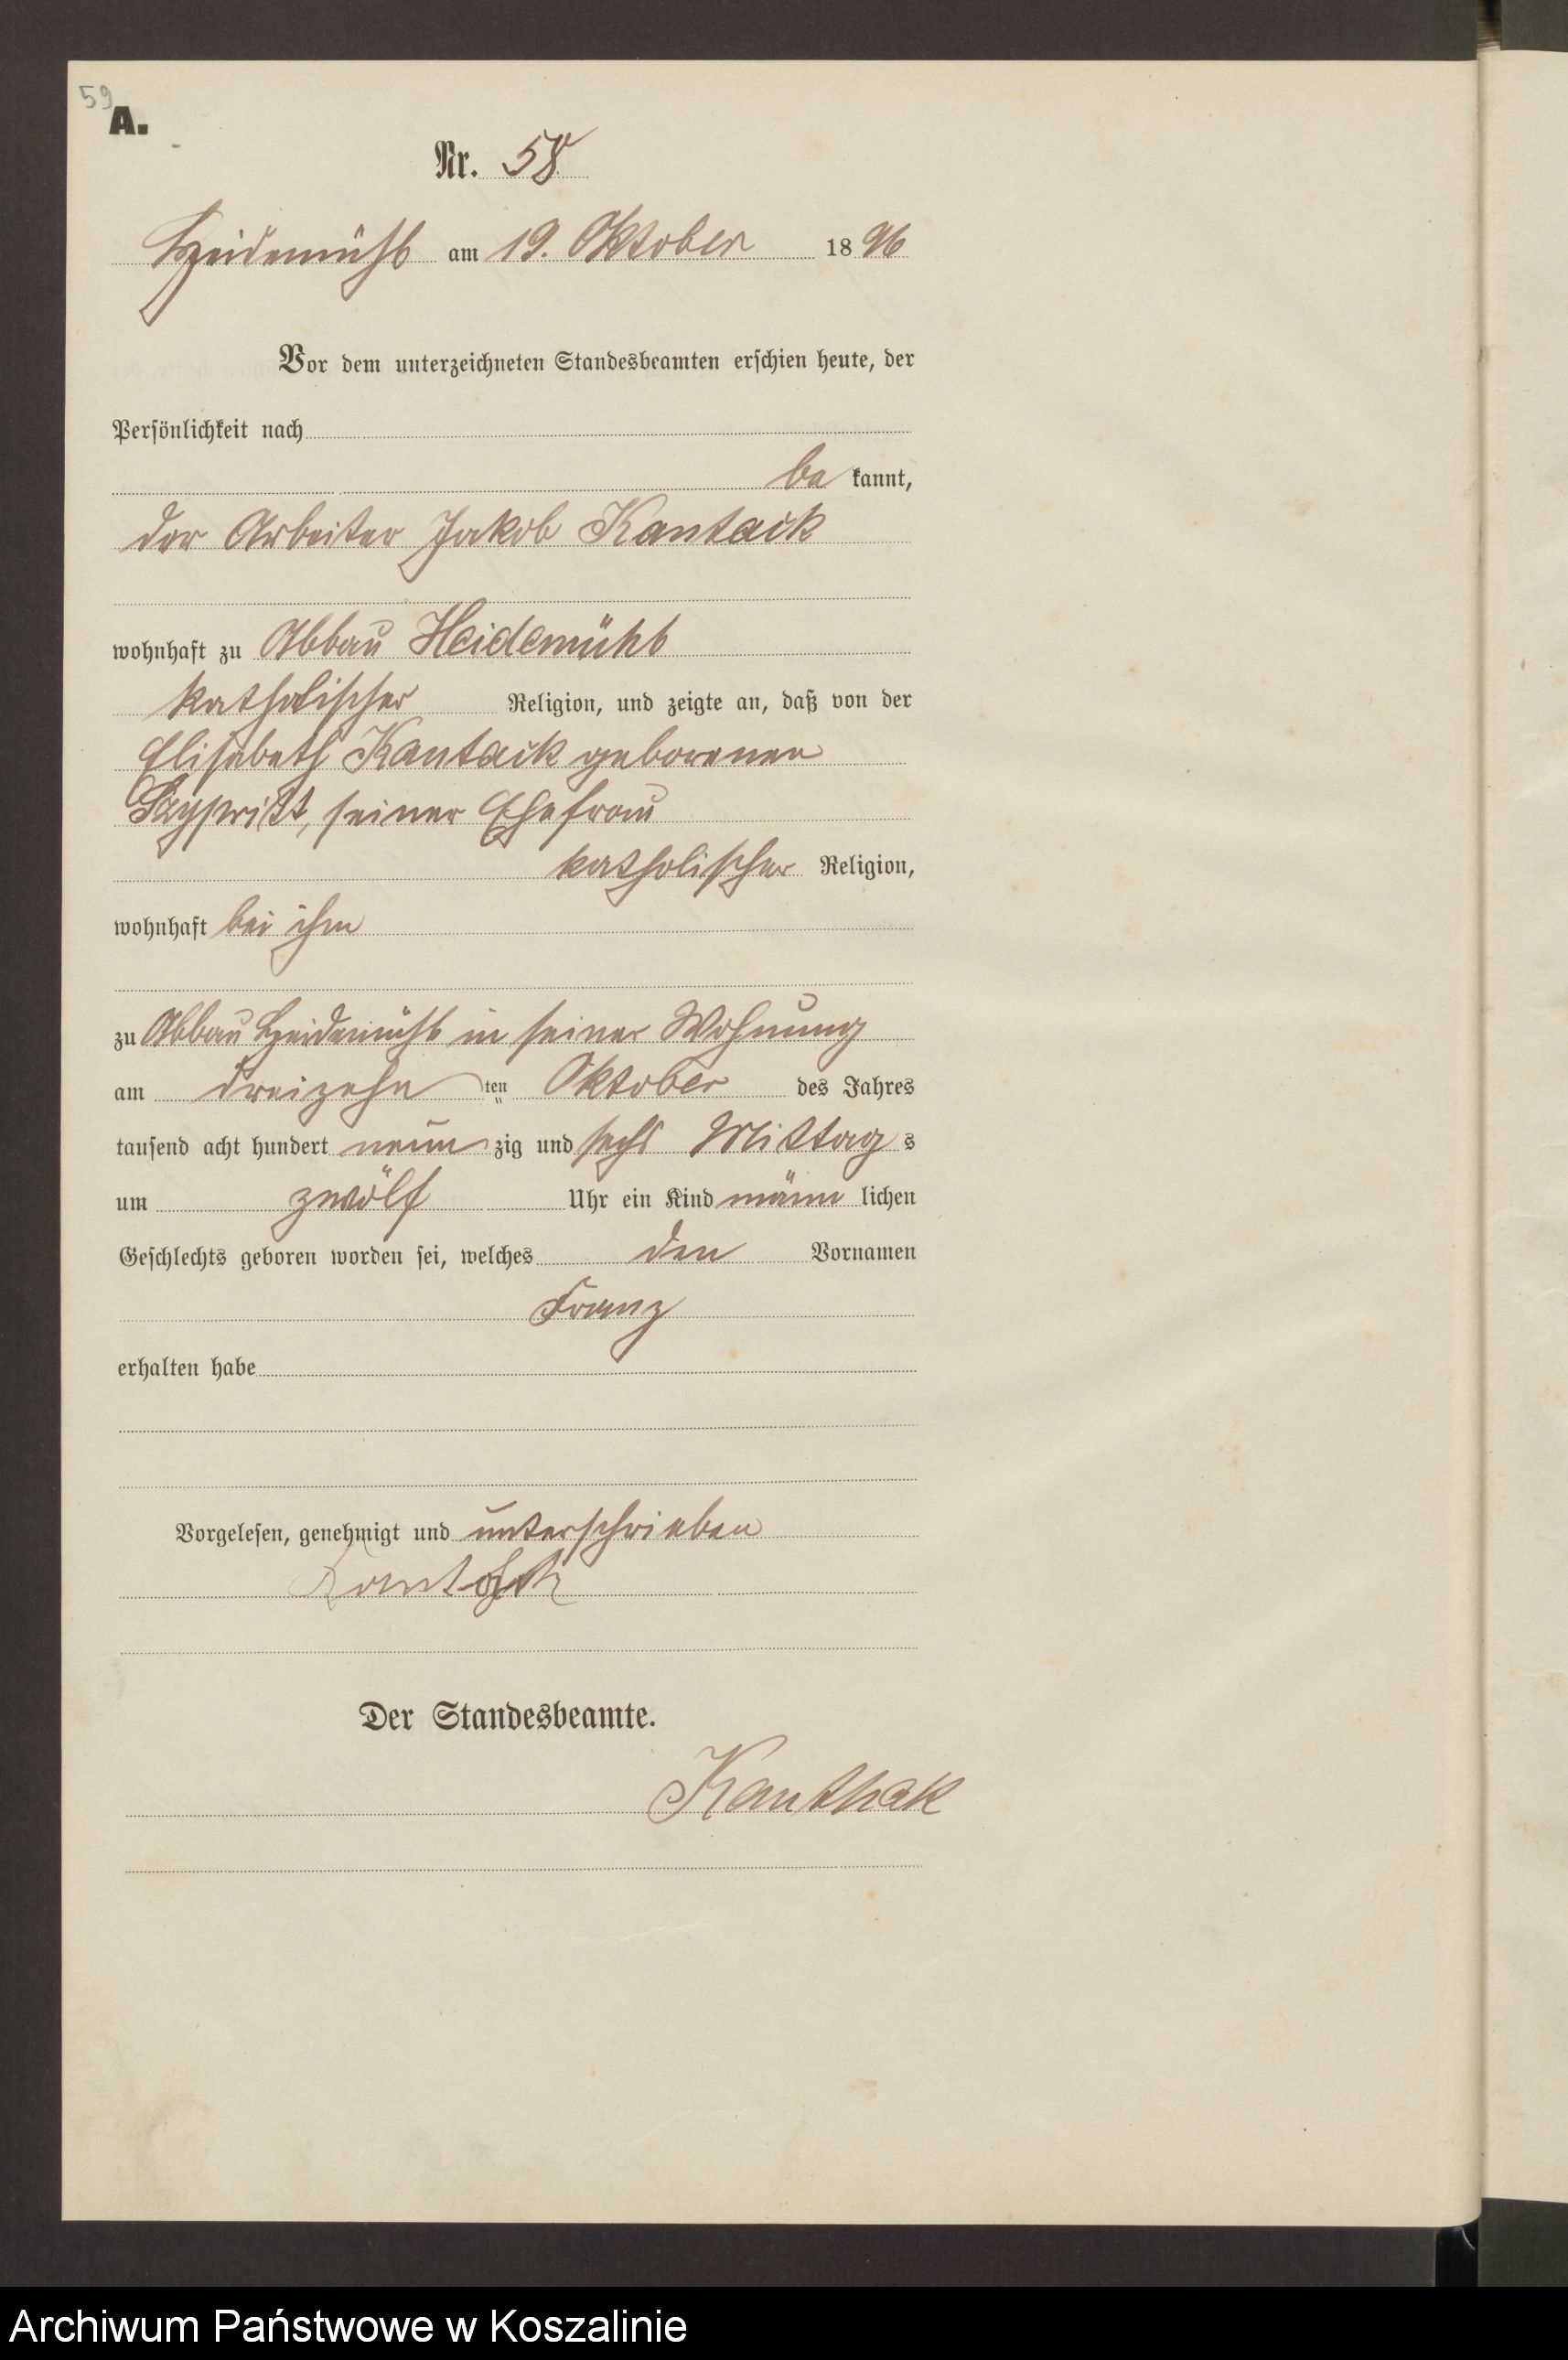 59
A.
Nr. 58
Heidemühl am 19. Oktober 1896
Vor dem unterzeichneten Standesbeamten erschien heute, der
Persönlichkeit nach
be kannt,
der Arbeiter Jakob Kantack
wohnhaft zu Abbau Heidemühl
katholischer Religion, und zeigte an, daß von der
Elisabeth Kantack geborenen
seiner Ehefrau
katholischer Religion,
wohnhaft bei ihm
zu Abbau Heidemühl in seiner Wohnung
am dreizehn ten Oktober des Jahres
tausend acht hundert neun zig und sechs Mittag s
um zwölf Uhr ein Kind männ lichen
Geschlechts geboren worden sei, welches den Vornamen
Franz
erhalten habe
Vorgelesen, genehmigt und unterschrieben
Kantack
Der Standesbeamte.
Kanthak
Archiwum Państwowe w Koszalinie